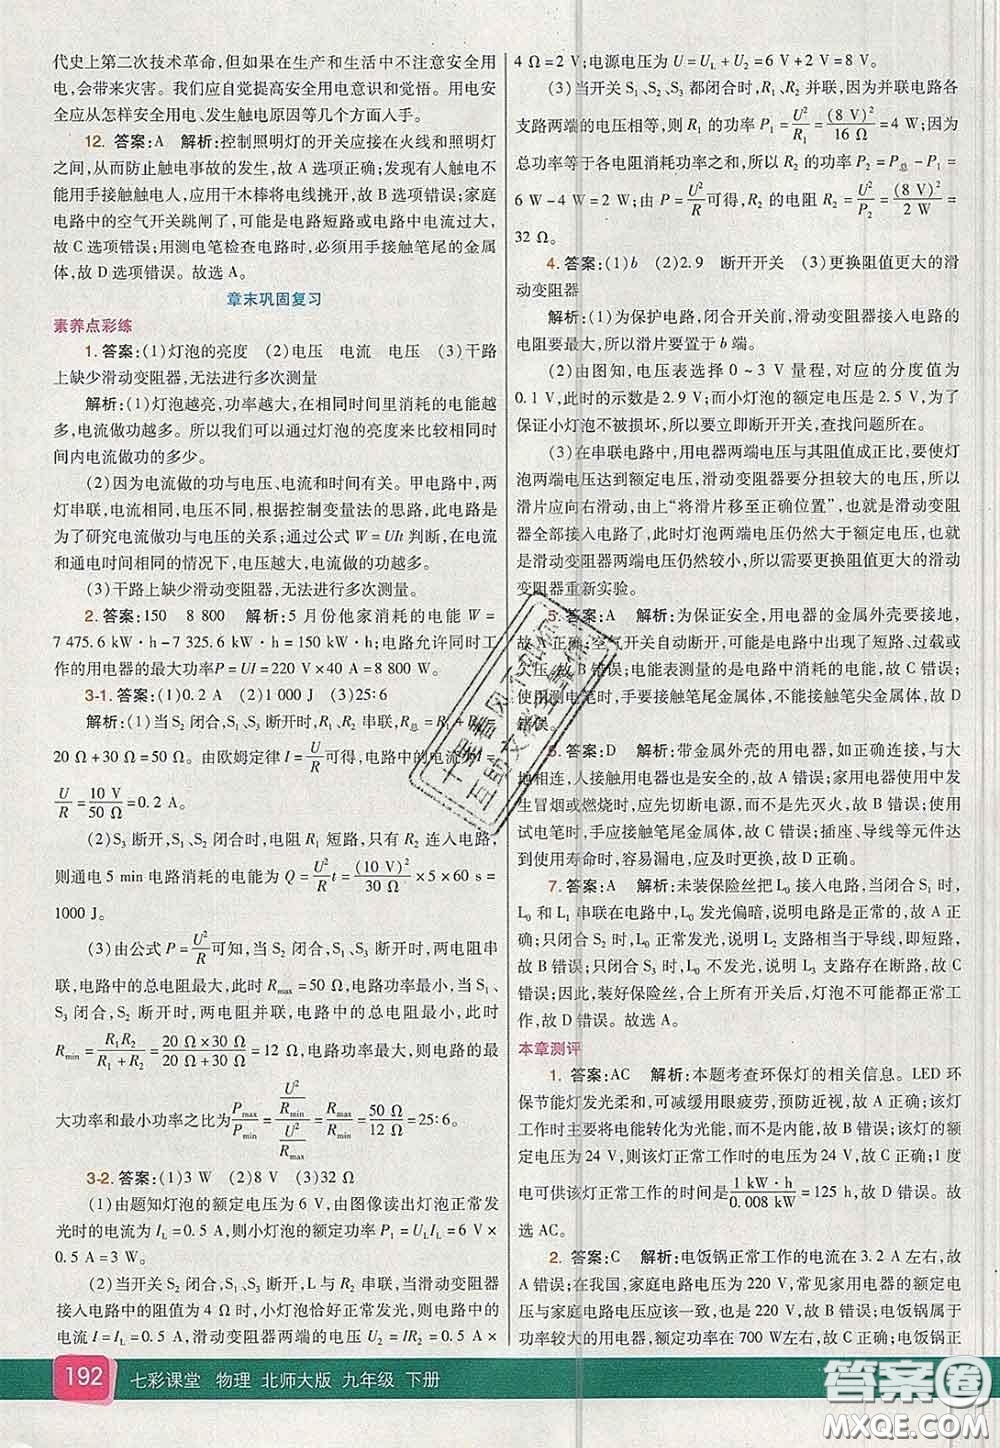 代史上第二次技术革命,但如果在生产和生活中不注意安全用
电,将会带来灾害。我们应自觉提高安全用电意识和觉悟。用电
安全应从怎样安全用电、发生触电原因等几个方面入手。
12. 答案:A 解析:控制照明灯的开关应接在火线和照明灯
之间,从而防止触电事故的发生,故 A 选项正确;发现有人触电不
能用手接触触电人,应用干木棒将电线挑开,故 B 选项错误;家庭
电路中的空气开关跳闸了,可能是电路短路或电路中电流过大,
故 C 选项错误;用测电笔检查电路时,必须用手接触笔尾的金属
体,故 D 选项错误。故选 A。
章末巩固复习
素养点彩练
1. 答案:(1)灯泡的亮度 (2)电压 电流 电压 (3)干路
上缺少滑动变阻器,无法进行多次测量
解析:(1)灯泡越亮,功率越大,在相同时间里消耗的电能越
多,电流做功越多。所以我们可以通过灯泡的亮度来比较相同时
间内电流做功的多少。
(2)因为电流做的功与电压、电流和时间有关。甲电路中,两
灯串联,电流相同,电压不同,根据控制变量法的思路,此电路是
为了研究电流做功与电压的关系;通过公式 W=UIt 判断,在电流
和通电时间相同时,电压越大,电流做功越多。
(3)干路上缺少滑动变阻器,无法进行多次测量。
2. 答案:150 8 800 解析:5 月份他家消耗的电能 W=
7 475.6 kW·h-7 325.6 kW·h=150 kW·h;电路允许同时工
作的用电器的最大功率P=UI=220 V×40 A=8 800 W。
3-1. 答案:(1)0.2 A (2)1 000 J (3)25:6
解析:(1)当 S₂ 闭合,S₁、S₃ 断开时,R₁、R₂ 串联,R总=R₁+R₂=
20 Ω+30 Ω=50 Ω。由欧姆定律 I=U/R可得,电路中的电流 I=
U/R=10 V/50 Ω=0.2 A。
(2)S₂ 断开,S₁、S₃ 闭合时,电阻 R₁ 短路,只有 R₂ 连入电路,
则通电 5 min 电路消耗的电能为 Q=U²/R t=(10 V)²/30 Ω×5×60 s=
1000 J。
(3)由公式 P=U²/R可知,当 S₂ 闭合,S₁、S₃ 断开时,两电阻串
联,电路中的总电阻最大,Rmax=50 Ω,电路功率最小,当 S₁、
S₃ 闭合,S₂ 断开时,两电阻并联,电路中的总电阻最小,
Rmin=R₁R₂/(R₁+R₂)=20 Ω×30 Ω/(20 Ω+30 Ω)=12 Ω,电路功率最大,则电路的最
大功率和最小功率之比为Pmax/Pmin=(U²/Rmin)/(U²/Rmax)=Rmax/Rmin=50 Ω/12 Ω=25:6
3-2. 答案:(1)3 W (2)8 V (3)32 Ω
(1)由题知灯泡的额定电压为 6 V,由图像读出灯泡正常发
光时的电流为 IL=0.5 A,则小灯泡的额定功率 P₁=ULIL=6 V×
0.5 A=3 W。
(2)当开关 S₁ 闭合,S₂、S₃ 断开时,L与 R₂ 串联,当滑动变阻器
接入电路中的阻值为 4 Ω 时,小灯泡恰好正常发光,则电路中的
电流 I=IL=0.5 A,滑动变阻器两端的电压 U₂=IR₂=0.5 A×
4 Ω=2 V;电源电压为 U=UL+U₂=6 V+2 V=8 V。
(3)当开关 S₁、S₂、S₃ 都闭合时,R₁、R₂ 并联,并联电路各
支路两端的电压相等,则 R₁ 的功率 P₁=U²/R₁=(8 V)²/16 Ω=4 W;因为
总功率等于各电阻消耗功率之和,所以 R₂ 的功率 P₂=P总-P₁=
6 W-4 W=2 W;由 P=U²/R可得,R₂ 的电阻 R₂=U²/P₂=(8 V)²/2 W=
32 Ω。
4. 答案:(1)b (2)2.9 断开开关 (3)更换阻值更大的滑
动变阻器
解析:(1)为保护电路,闭合开关前,滑动变阻器接入电路的
电阻要最大,所以滑片要置于 b 端。
(2)由图知,电压表选择 0~3 V 量程,对应的分度值为
0.1 V,此时的示数是 2.9 V;而小灯泡的额定电压是 2.5 V,为了
保证小灯泡不被损坏,要立即断开开关,查找问题所在。
(3)在串联电路中,用电器两端电压与其阻值成正比,要使灯
泡两端电压达到额定电压,滑动变阻器要分担较大的电压,所以
滑片应向右端滑动,由于“将滑片移至正确位置”,也就是滑动变阻
器全部接入电路了,此时灯泡两端电压仍然大于额定电压,所以
滑动变阻器两端电压仍然较小,所以需要更换阻值更大的滑
动变阻器重新实验。
5. 答案:A 解析:为保证安全,用电器的金属外壳要接地,
故 A 正确;空气开关自动断开,可能是电路中出现了短路、过载或
火、电压,故 B 错误;电能表测量的是电路中消耗的电能,故 C 错误;
使用测电笔时,手要接触笔尾金属体,不能接触笔尖金属体,故 D
错误。
6. 答案:D 解析:带金属外壳的用电器,如正确连接,与大
地相连,人接触用电器也是安全的,故 A 错误;家用电器使用中发
生冒烟或燃烧时,应先切断电源,而不是先灭火,故 B 错误;使用
试电笔时,手应接触笔尾金属体,故 C 错误;插座、导线等元件达
到使用寿命时,容易漏电,应及时更换,故 D 正确。
7. 答案:A 解析:未装保险丝把 L₀ 接入电路,当闭合 S₁ 时,
L₀ 和 L₁ 串联在电路中,L₀ 发光偏暗,说明电路是正常的,故 A 正
确;当只闭合 S₂ 时,L₀ 正常发光,说明 L₂ 支路相当于导线,即短路,
故 B 错误;同理,当只闭合 S₃ 时,说明 L₃ 支路存在断路,故 C
错误;因此,装好保险丝,合上所有开关后,灯泡不可能都正常工
作,故 D 错误。故选 A。
本章测评
1. 答案:AC 解析:本题考查环保灯的相关信息。LED 环
保节能灯发光柔和,可减缓用眼疲劳,预防近视,故 A 正确;该灯
工作时主要将电能转化为光能,而不是内能,故 B 错误;该灯额定
电压为 24 V,则该灯正常工作时电压为 24 V,故 C 正确;1 度
电可供该灯正常工作的时间是1 kW·h/0.008 kW=125 h,故 D 错误。故
选 AC。
2. 答案:C 解析:电饭锅正常工作的电流在 3.2 A 左右,故
A 错误;在我国,家庭电路电压为 220 V,常见家用电器的额定电
压与家庭电路电压应该一致,也是 220 V,故 B 错误;电饭锅属于
功率较大的用电器,额定功率在 700 W左右,故 C 正确;电饭锅正
192 七彩课堂 物理 北师大版 九年级 下册
答案圈
MXQE.COM